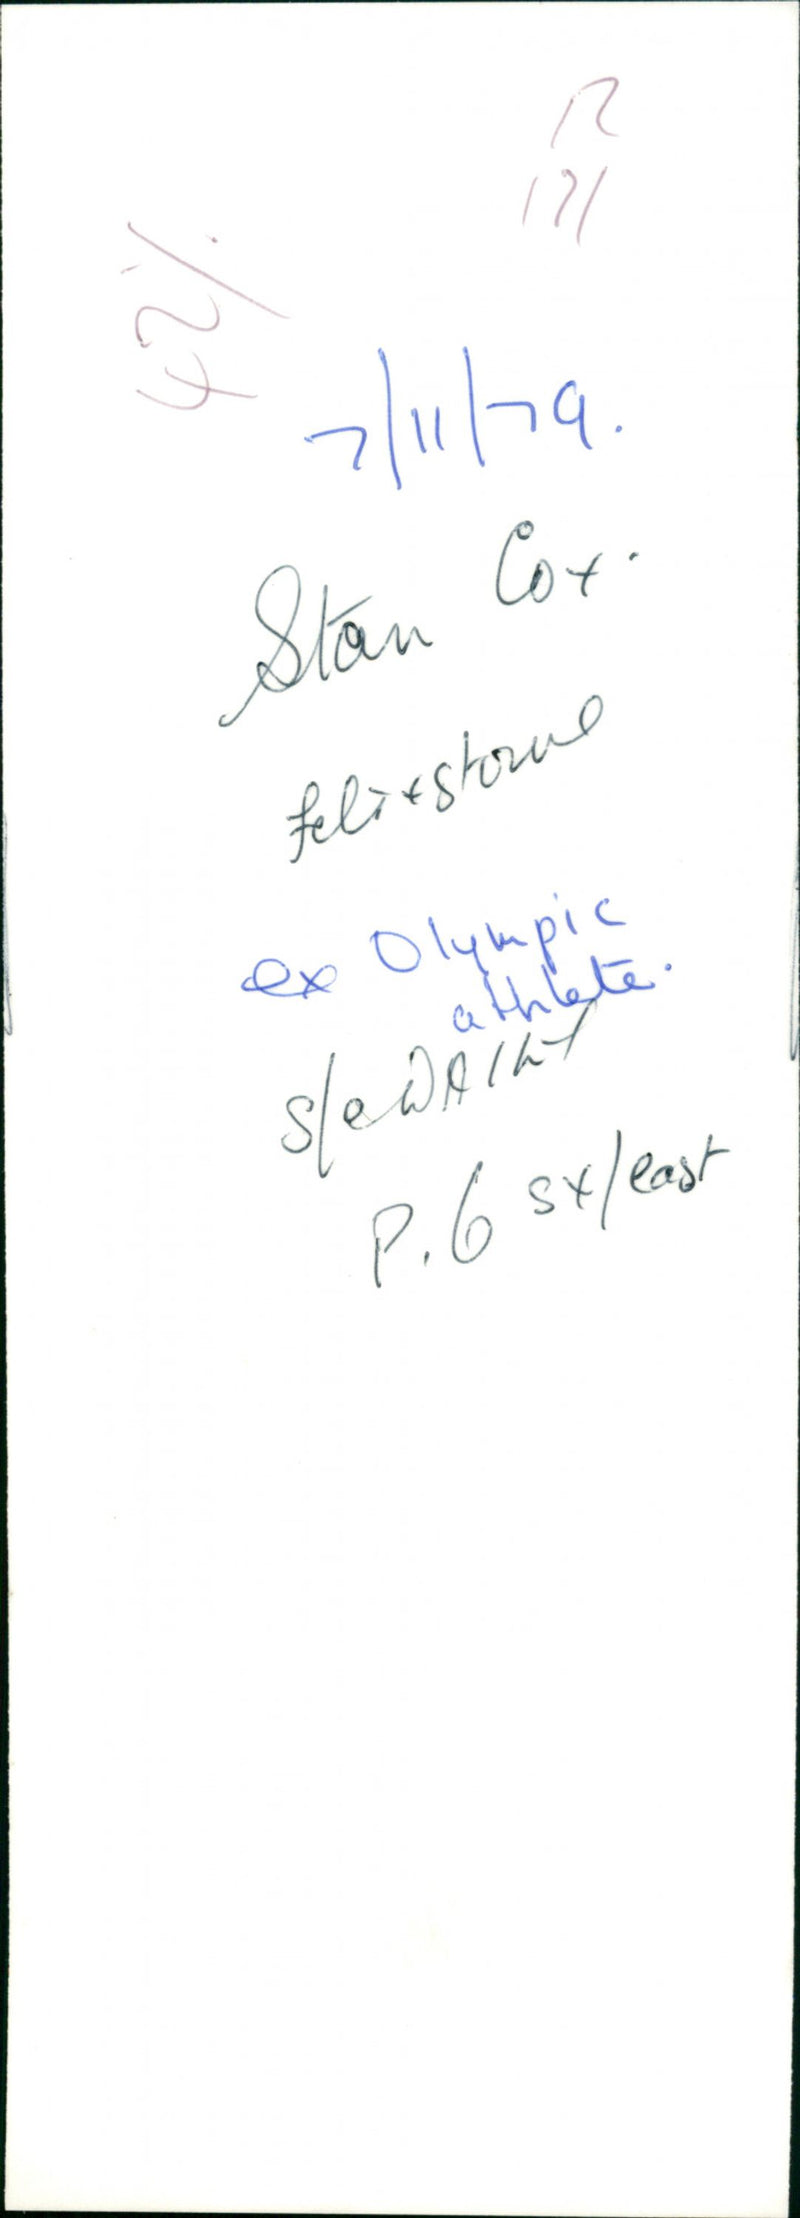 42%
7/11/79.
Stan Cox.
Felixstowe
ex Olympic
athlete.
P.6 sx/east